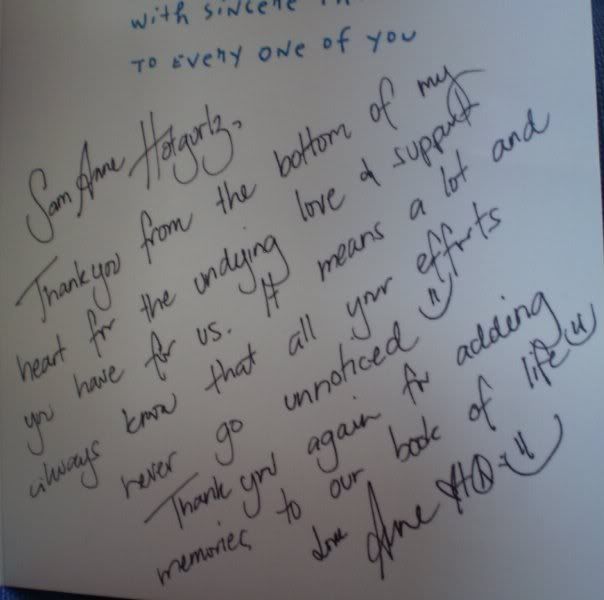 with sincere
to every one of you
Sam Anne Hotgurlz,
Thank you from the bottom of my
heart for the undying love & support
you have for us. It means a lot and
always know that all your efforts
never go unnoticed
Thank you again for adding
memories to our book of life
Love Anne